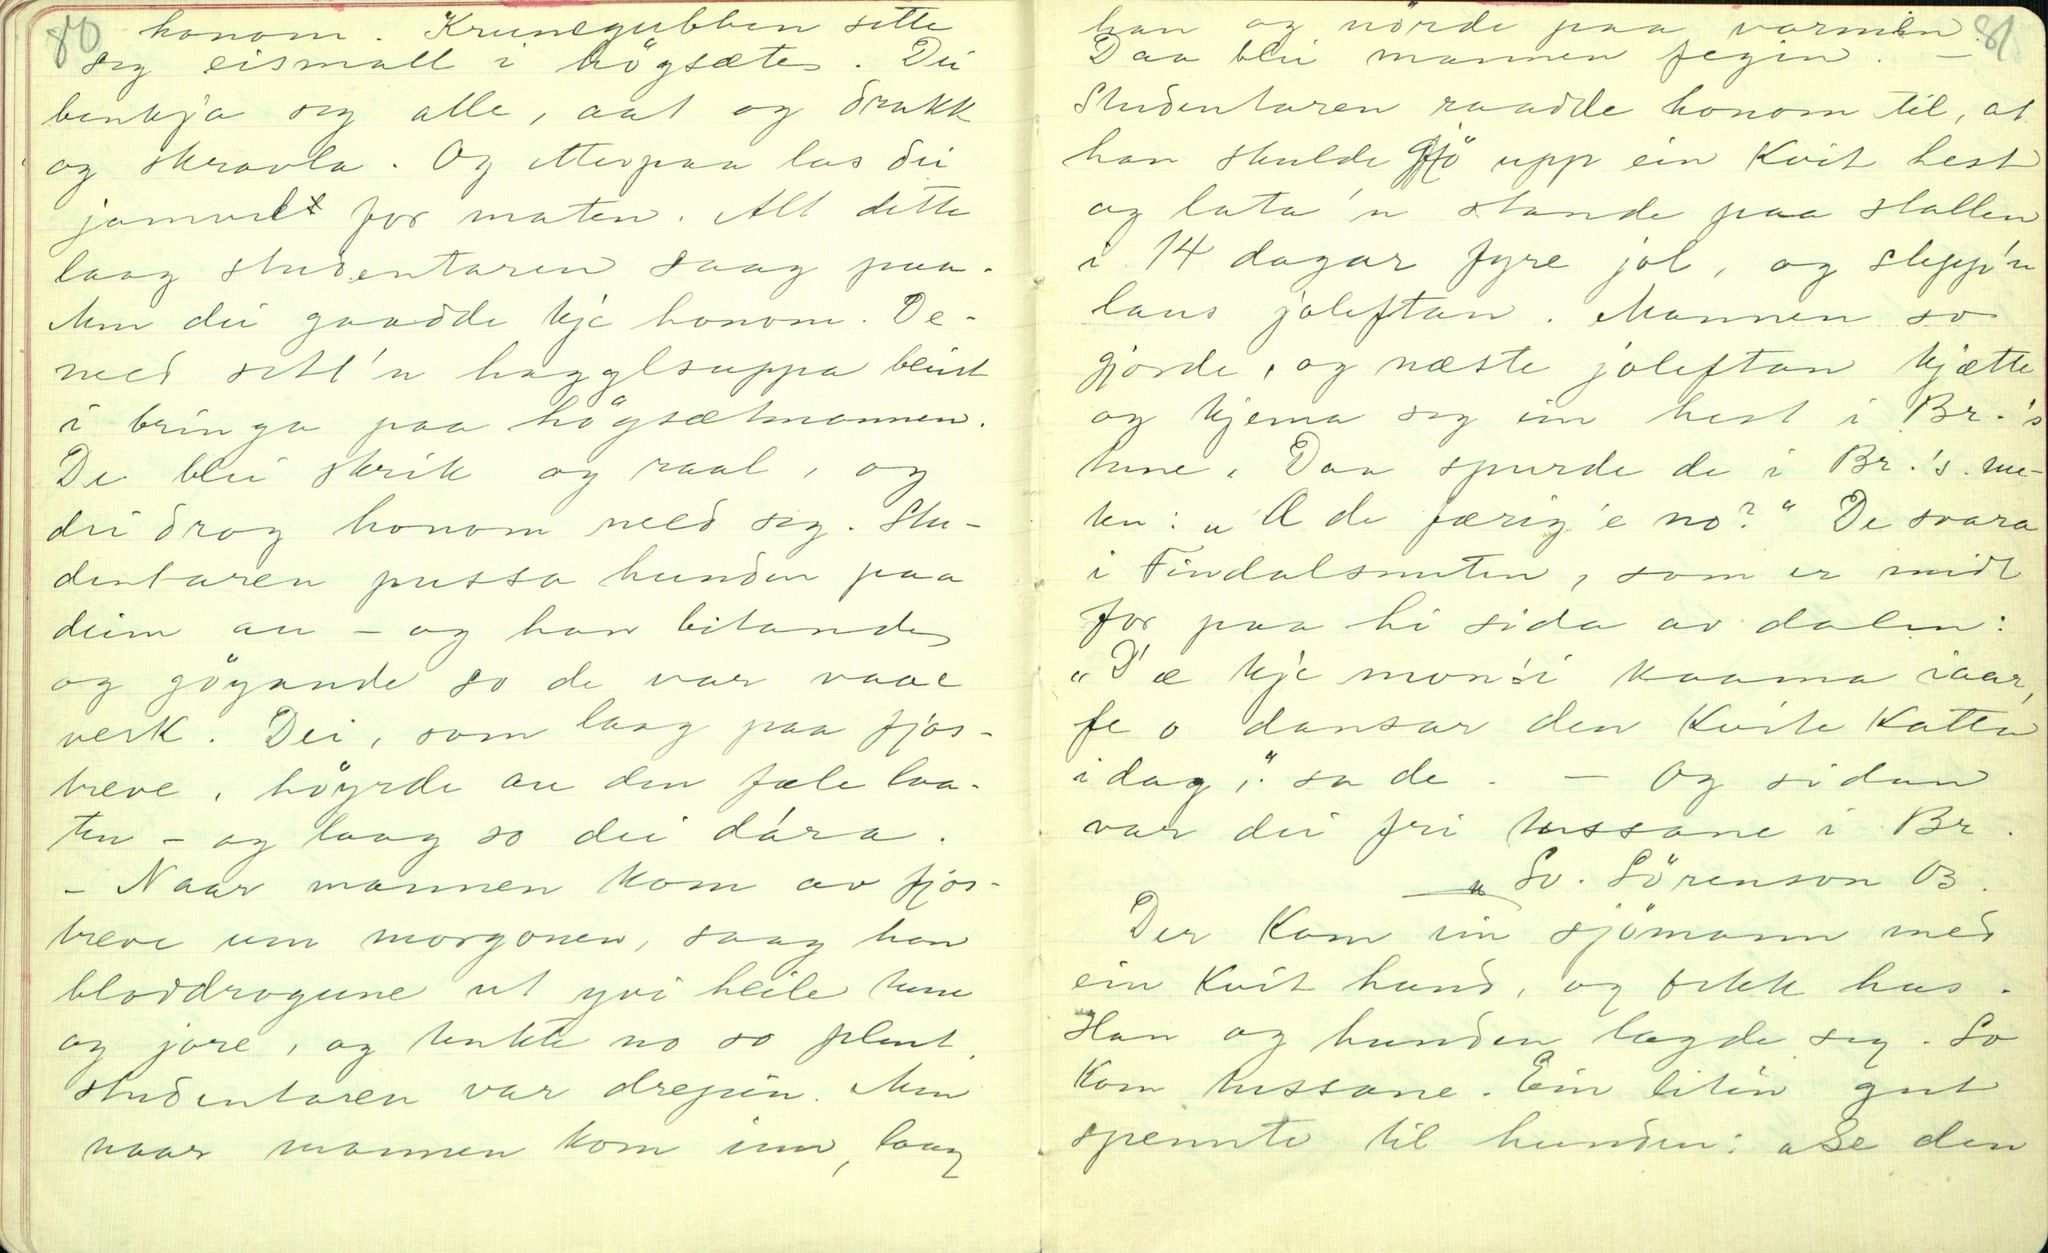 80
honom. Krunegubben sette
seg eismall i högsæte. Dei
benkja seg alle, aat og drakk
og skravla. Og etterpaa las dei
jamvel for maten. Alt dette
laag studentaren saag paa.
Men dei gaadde kje honom. De-
med sett'n hagglsuppa beint
i bringa paa högsætmannen.
De blei skrik og raal, og
dei drog honom med seg. Stu-
dentaren pussa hunden paa
deim au – og han bitande
og göyande so de var vaae
verk. Dei, som laag paa fjos-
treve, höyrde au den fæle laa-
ten – og laag so dei dára.
– Naar mannen kom av fjos-
treve um morgonen, saag han
bloddrogune ut yvi heile tune
og jore, og tenkte no so plent,
studentaren var drepin. Men
naar mannen kom inn, laag
81
han og nörde paa varmen.
Daa blei mannen fegin. –
Studentaren raadde honom til, at
han skulde gjö upp ein kvit hest
og lata'n stande paa stallen
i 14 dagar fyre jol, og slepp'n
laus joleftan. Mannen so
gjorde, og næste joleftan kjætte
og kjema seg ein hest i Br.'s
tune. Daa spurde de i Br.'s nu-
ten: „Æ de færig'e no?" De svara
i Findalsnuten, som er midt
for paa hi sida av dalen:
„D'æ kje mon'i kaama iaar,
fe o dansar den kvite katten
idag," sa de. – Og sidan
var dei fri tussane i Br.
Sv. Sörenson Ö3.
Der kom ein sjömann med
ein kvit hund, og fekk hus.
Han og hunden lagde seg. So
kom tussane. Ein liten gut
spennte til hunden: „Se den